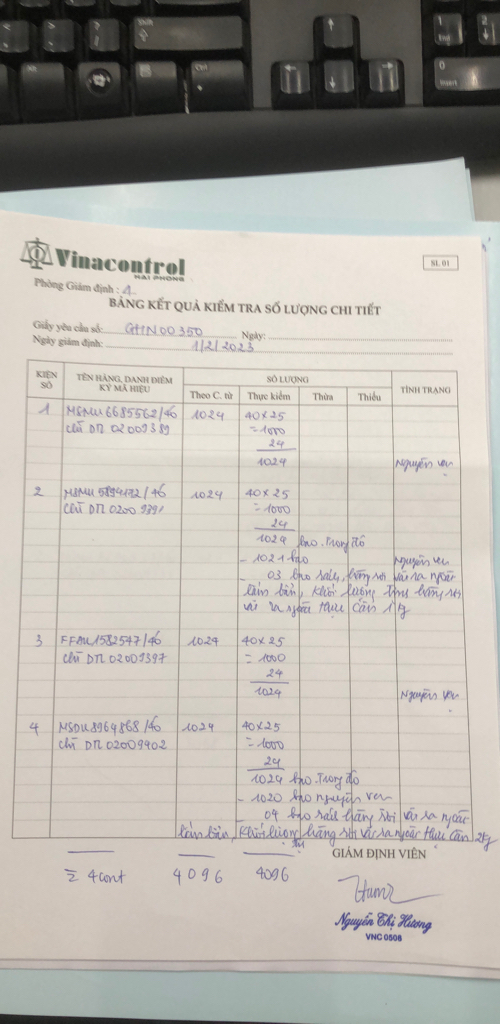 Vinacontrol
HAI PHONG
SL 01
Phòng Giám định : 1
BẢNG KẾT QUẢ KIỂM TRA SỐ LƯỢNG CHI TIẾT
Giấy yêu cầu số: G11N00350 Ngày:
Ngày giám định: 1/2/2023
KIỆN SỐ TÊN HÀNG, DANH ĐIỂM KÝ MÃ HIỆU SỐ LƯỢNG TÌNH TRẠNG
Theo C. từ Thực kiểm Thừa Thiếu
1 6685562/40 1024 40x25
chì DT 02009389 =1000
24
1024 Nguyên vẹn
2 /40 1024 40x25
chì DT =1000
24
1024 bao. Trong đó
- 1021 bao Nguyên vẹn
- 03 bao rách, hàng rơi vãi ra ngoài
lấm bẩn, khối lượng hàng rơi
vãi ra ngoài thực cân 1kg
3 1582547/40 1024 40x25
chì DT 02009397 =1000
24
1024 Nguyên vẹn
4 MSDU8964868/40 1024 40x25
chì DT 02009402 =1000
24
1024 bao. Trong đó
- 1020 bao nguyên vẹn
- 04 bao rách hàng rơi vãi ra ngoài
lấm bẩn, khối lượng hàng rơi vãi ra ngoài thực cân 2kg
GIÁM ĐỊNH VIÊN
Σ 4cont 4096 4096
Nguyễn Thị Hương
VNC 0508